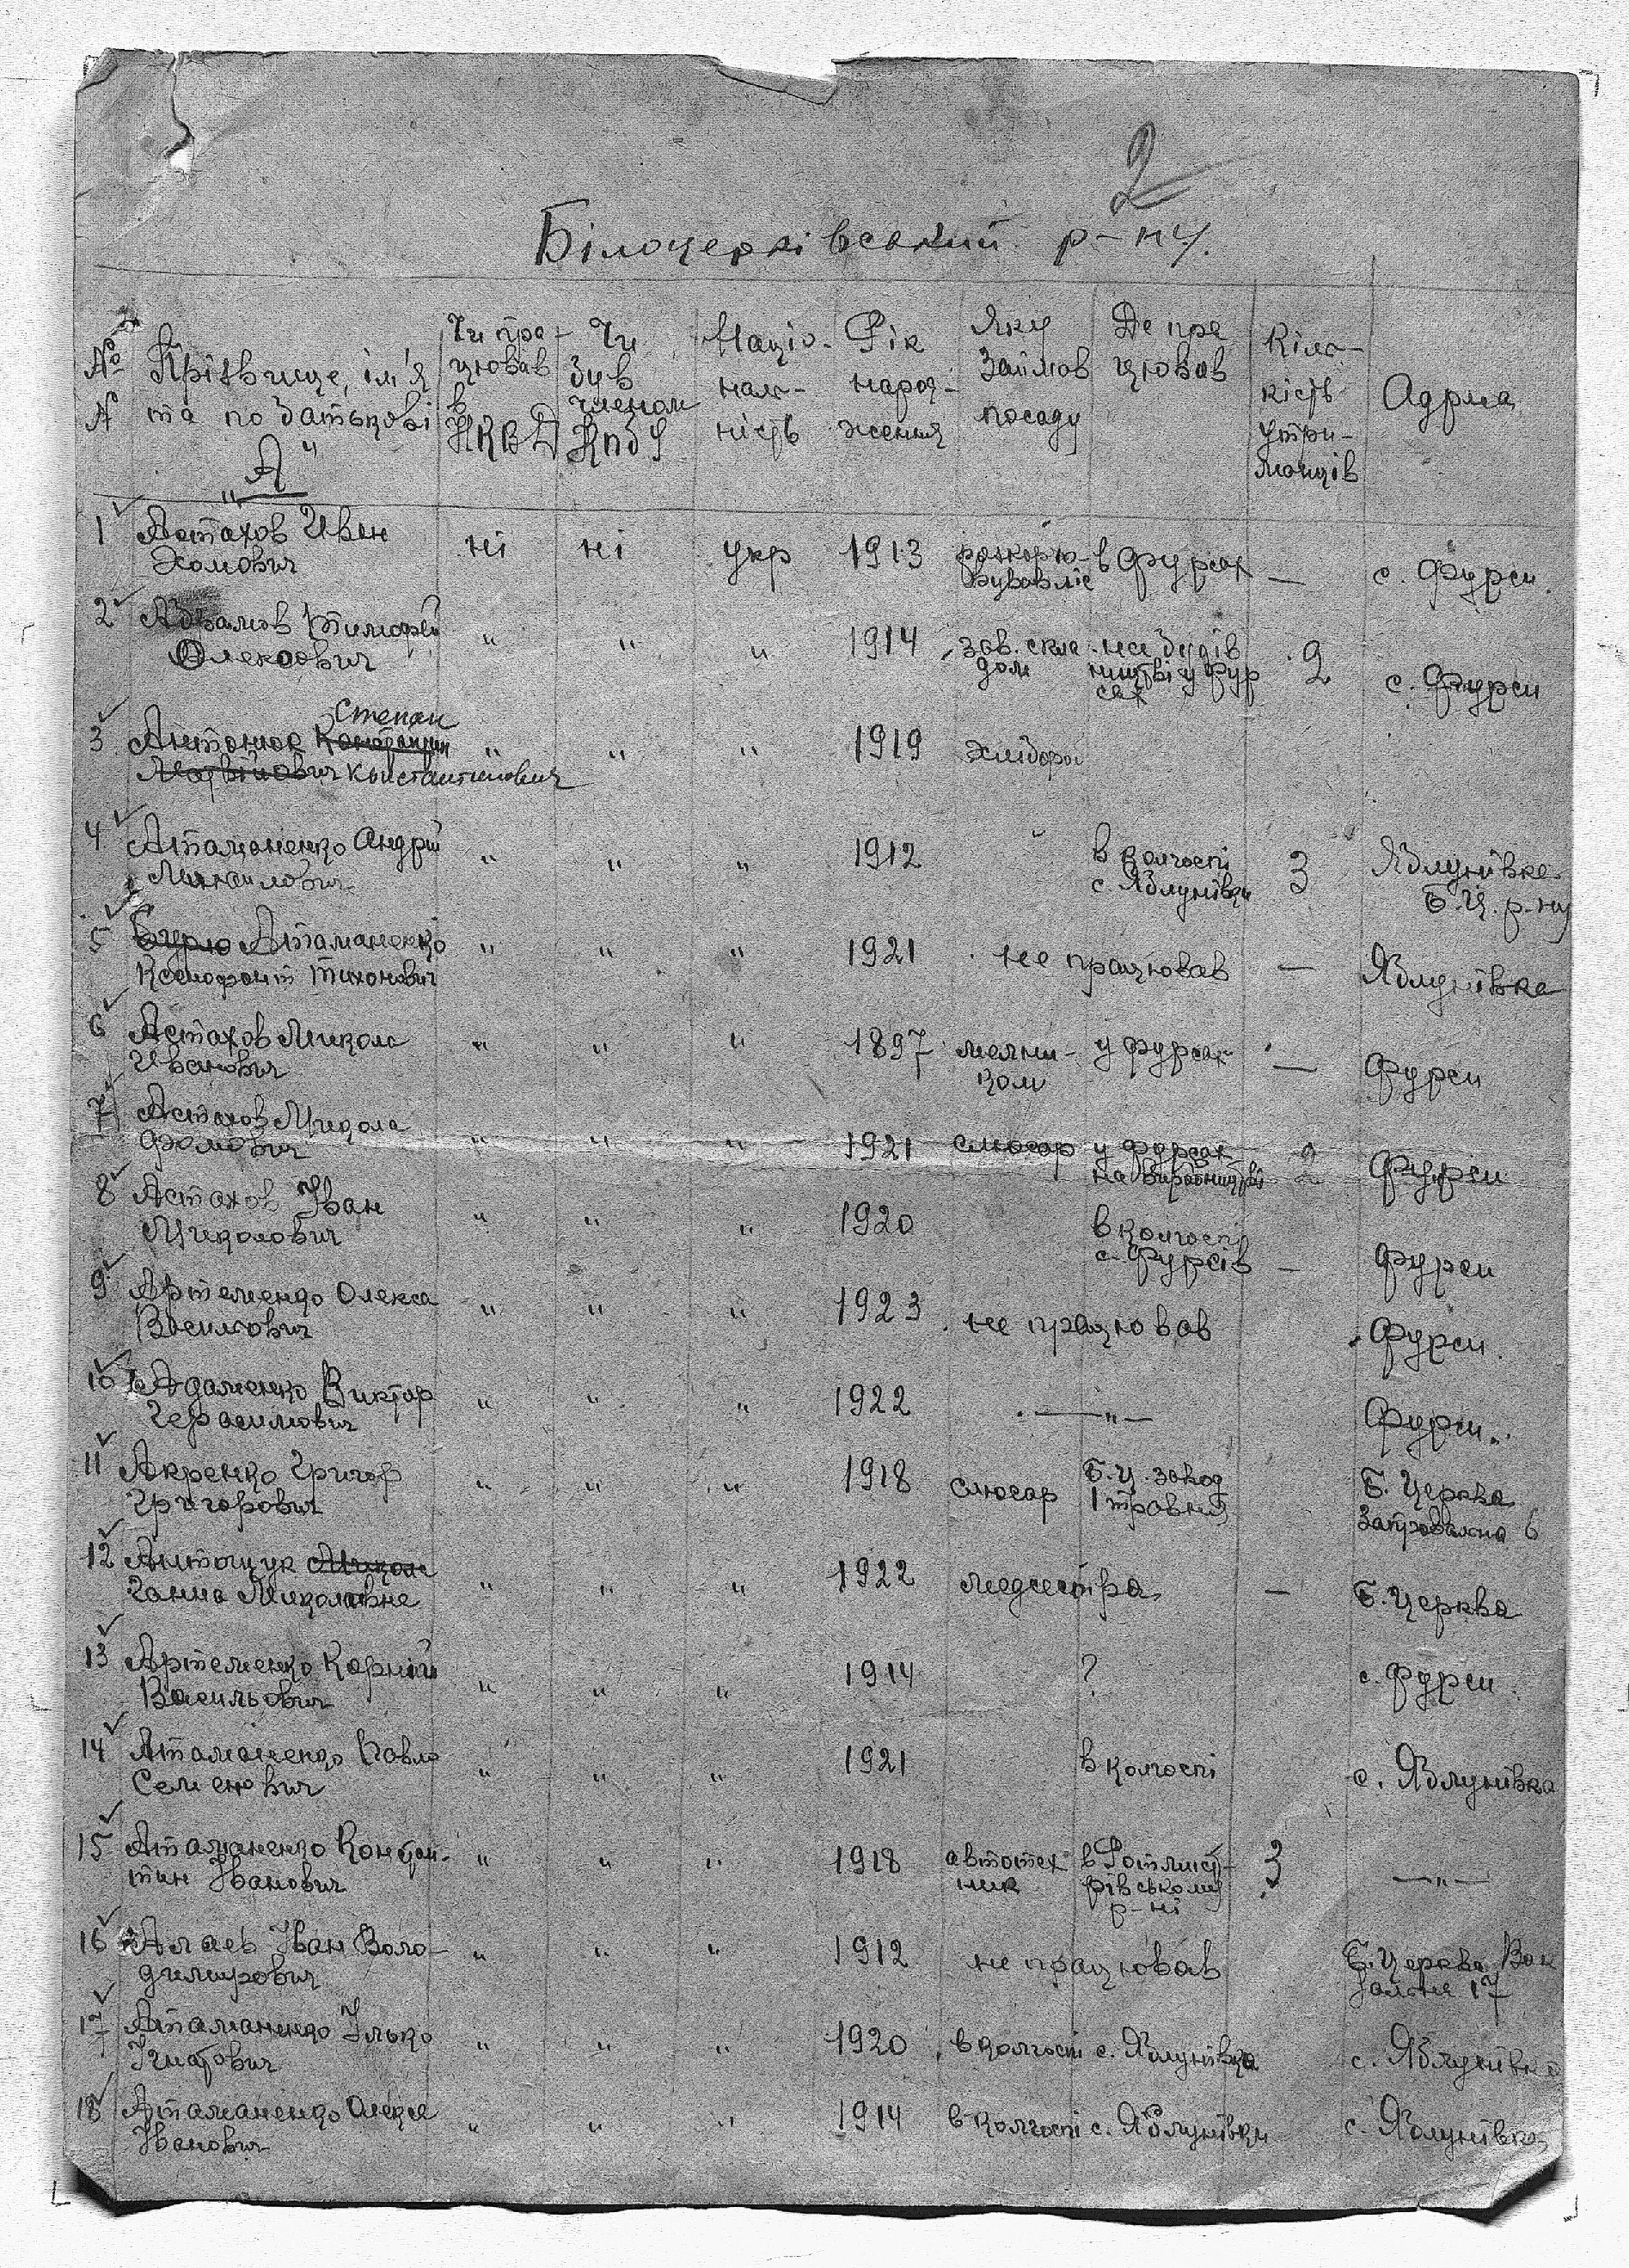 2
Білоцерківський р-ну.
№ № Прізвище, ім'я та по батькові
Чи працював в НКВД
Чи був членом КпбУ
Націо-нальність
Рік народження
Яку займав посаду
Де працював
Кількість утриманців
Адреса
"А"
1 Астахов Иван Хомович ні ні укр 1913 в Фурсах — с. Фурси.
2 Тимофій Олексович " " " 1914 зав. складом на будівництві у Фурсах 2 с. Фурси
3 Антонюк Степан Константинович " " " 1919 хлібороб
4 Атаманенко Андрій Михайлович " " " 1912 в колгоспі с. Яблунівки 3 Яблунівка Б.Ц. р-ну
5 Атаманенко Ксенофонт Тихонович " " " 1921 не працював — Яблунівка
6 Астахов Микола Иванович " " " 1897 мельником у Фурсах — Фурси
7 Астахов Микола Фомович " " " 1921 слюсар у Фурсах на виробництві 2 Фурси
8 Астахов Іван Миколович " " " 1920 в колгоспі с. Фурсів — Фурси
9 Артеменко Олекса Васильович " " " 1923 не працював Фурси
10 Адаменко Виктор Герасимович " " " 1922 —"— Фурси
11 Акренко Григор Григорович " " " 1918 слюсар Б.Ц. завод 1 травня Б. Церква 6
12 Антощук Ганна Миколаївна " " " 1922 медсестра — Б. Церква
13 Артеменко Карній Васильович " " " 1914 ? с. Фурси
14 Атаманенко Павло Семенович " " " 1921 в колгоспі с. Яблунівка
15 Атаманенко Констан-тин Іванович " " " 1918 автотехник в рівському р-ні 3 —"—
16 Алаев Іван Воло-димирович " " " 1912 не працював Б. Церква Вокзальна 17
17 Атаманенко Ілько Ігнатович " " " 1920 в колгоспі с. Яблунівка с. Яблунівка
18 Атаманенко Олексе Іванович " " " 1914 в колгоспі с. Яблунівки с. Яблунівка